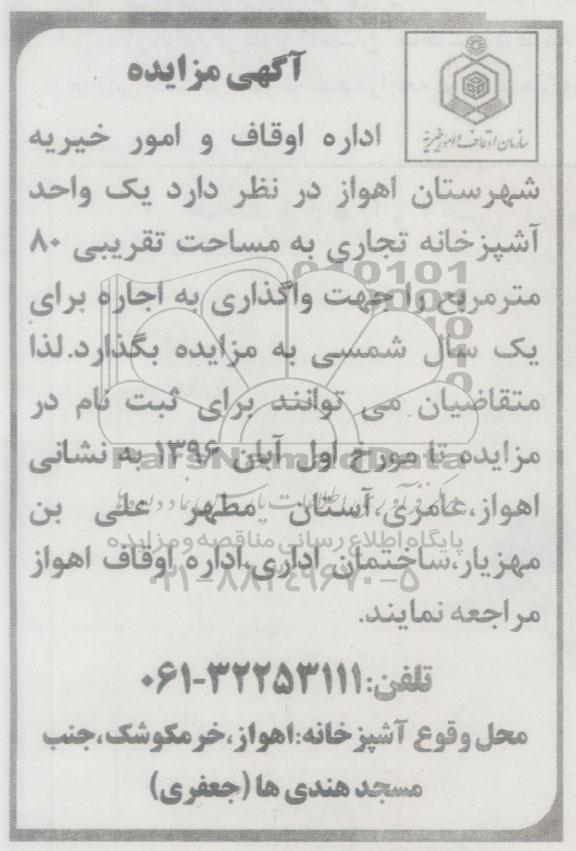 آگهی مزایده
سازمان اوقاف و امور خیریه
اداره اوقاف و امور خیریه
شهرستان اهواز در نظر دارد یک واحد
آشپزخانه تجاری به مساحت تقریبی ۸۰
مترمربع را جهت واگذاری به اجاره برای
یک سال شمسی به مزایده بگذارد.لذا
متقاضیان می توانند برای ثبت نام در
مزایده تا مورخ اول آبان ۱۳۹۶ به نشانی
ParsNamadData
اهواز،عامری،آستان مطهر علی بن
پایگاه اطلاع رسانی مناقصه و مزایده
مهزیار،ساختمان اداری،اداره اوقاف اهواز
۰۲۱-۸۸۳۴۹۶۷۰-۵
مراجعه نمایند.
تلفن:۳۲۲۵۳۱۱۱-۰۶۱
محل وقوع آشپزخانه:اهواز،خرمکوشک،جنب
مسجد هندی ها (جعفری)